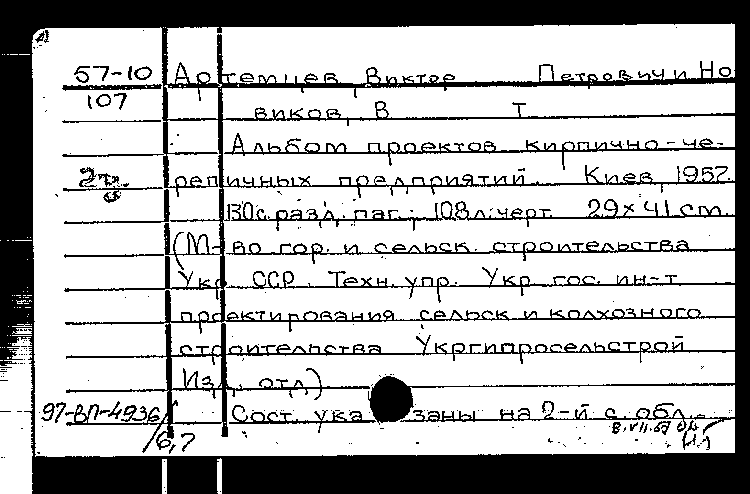 57-10 Артемцев, Виктор Петрович и Но
107
виков, В Т
Альбом проектов кирпично-че-
репичных предприятий Киев, 1957.
130 с. разд. паг.; 108 л. черт. 29×41 см.
(М-во гор. и сельск. строительства
Укр ССР. Техн. упр. Укр гос. ин-т
проектирования сельск и колхозного
строительства Укргипросельстрой
Изд. отд)
97-ВП-4936/6,7 Сост. указаны на 2-й с. обл.